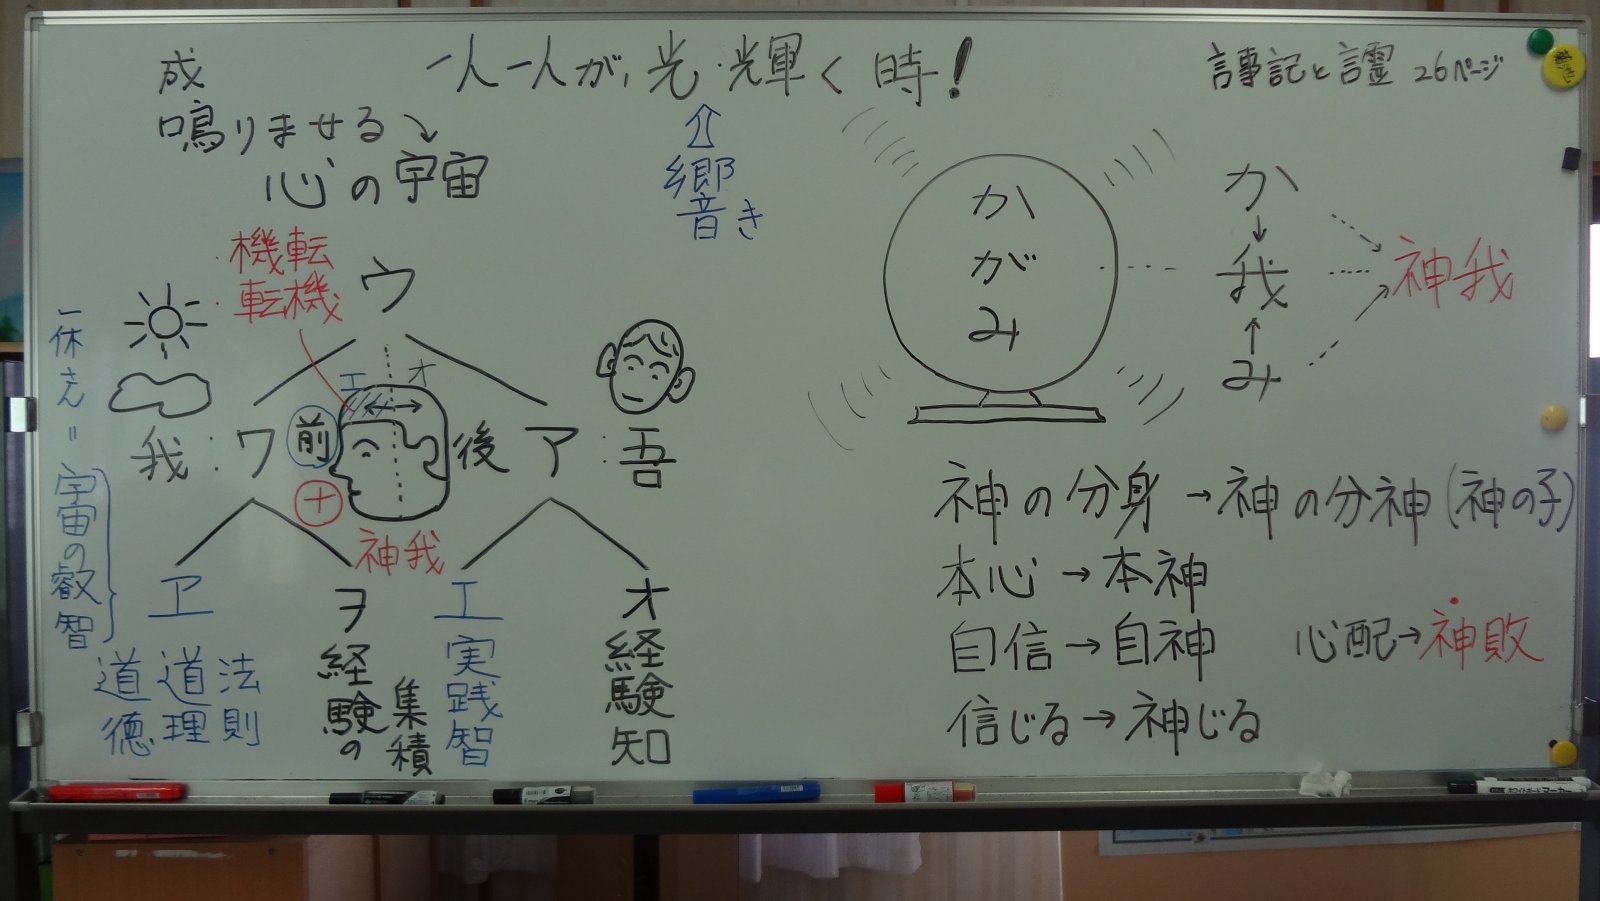 成
鳴りませる
心の宇宙
一人一人が、光・輝く時!
響き
言事記と言霊 26ページ
・機転
・転機
ウ
エ
オ
一休さん=宇宙の叡智
我:ワ
前
後
ア:吾
+
神我
ヱ
道徳
道理
法則
ヲ
経験の
集積
エ
実践智
オ
経験知
かがみ
か
我
み
神我
神の分身→神の分神(神の子)
本心→本神
自信→自神
心配→神敗
信じる→神じる